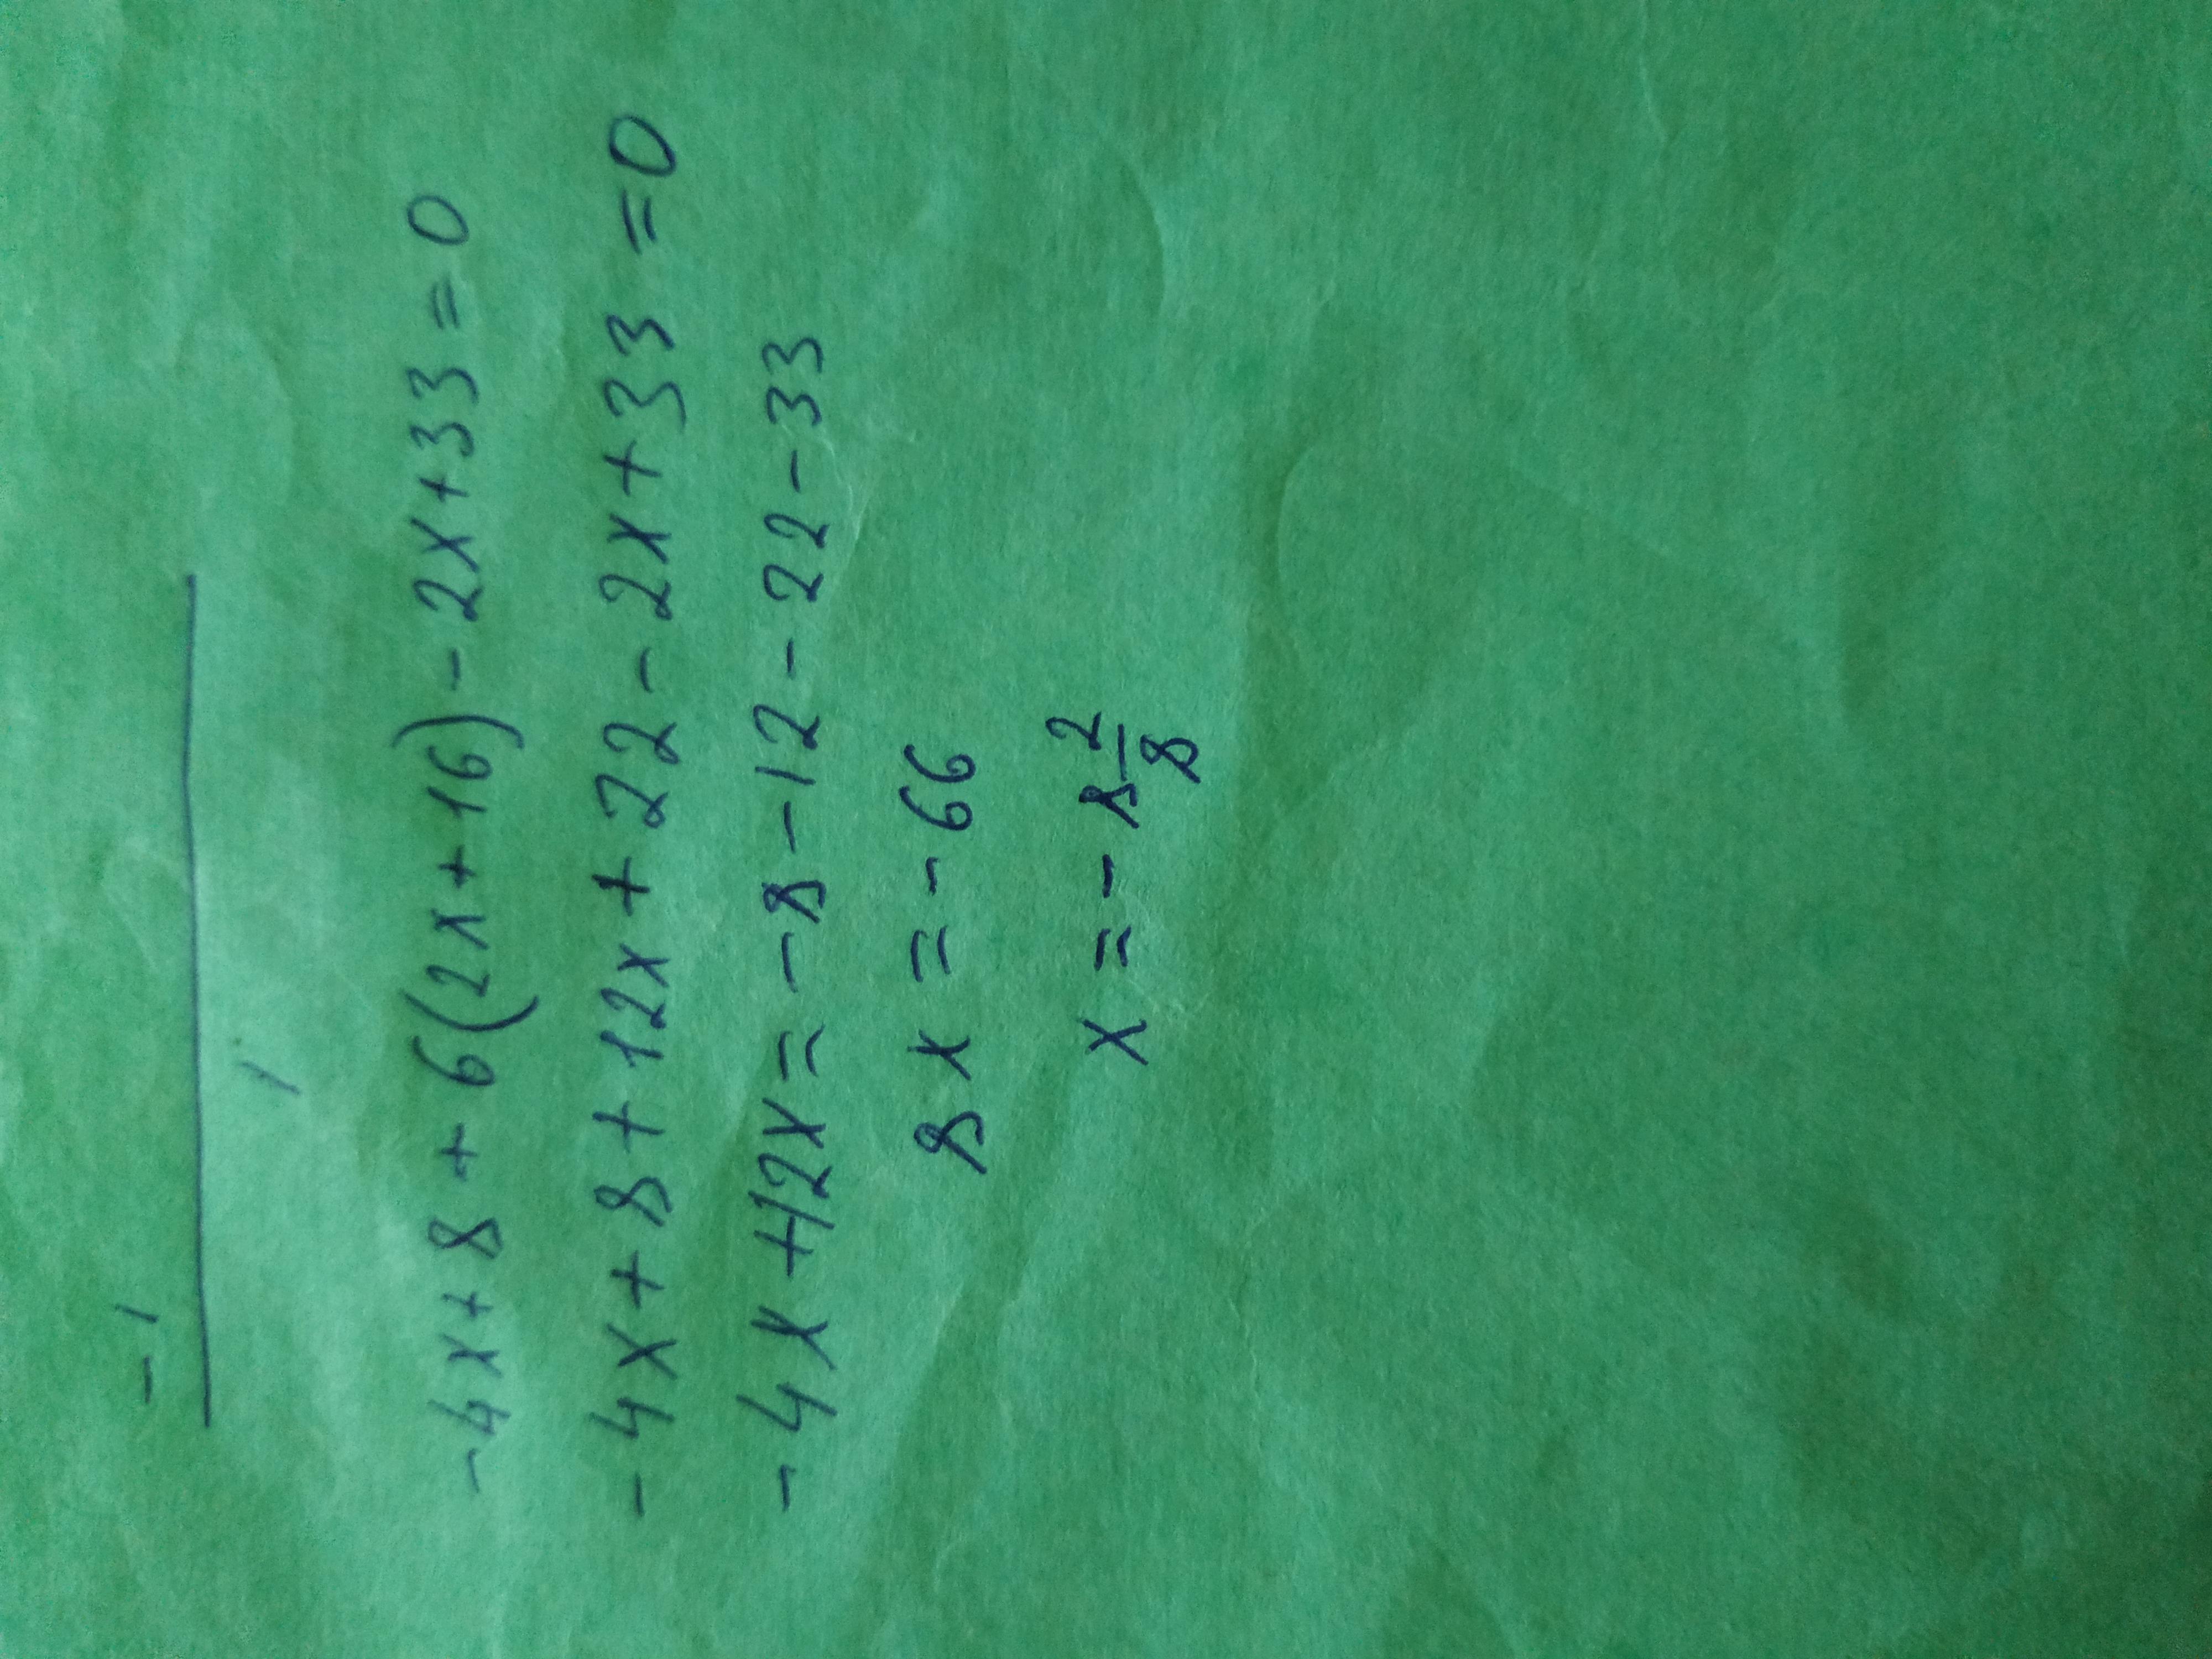 -1
1
-4x+8+6(2x+16)-2x+33=0
-4x+8+12x+22-2x+33=0
-4x+12x=-8-12-22-33
8x=-66
x=-8 2/8